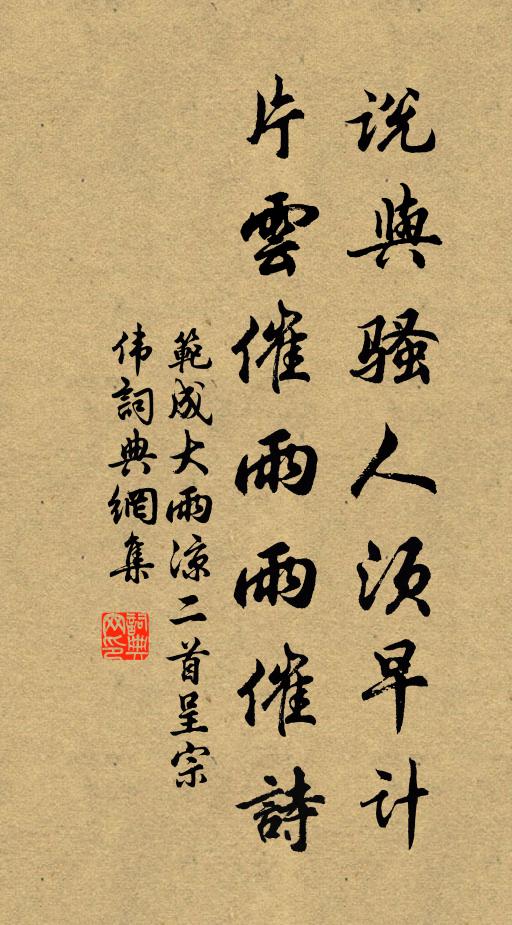 说與骚人须早计
片雲催雨雨催詩
範成大雨凉二首呈宗
伟詞典網集
詞典网印